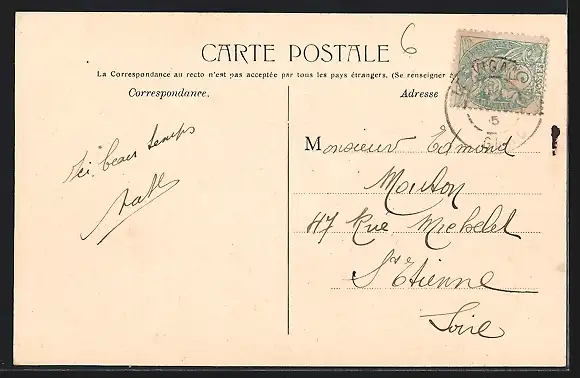 6
CARTE POSTALE
La Correspondance au recto n'est pas acceptée par tous les pays étrangers. (Se renseigner
Correspondance.
Adresse
Ici beau temps
Monsieur Edmond
Mouton
47 Rue Michelet
St Etienne
Loire